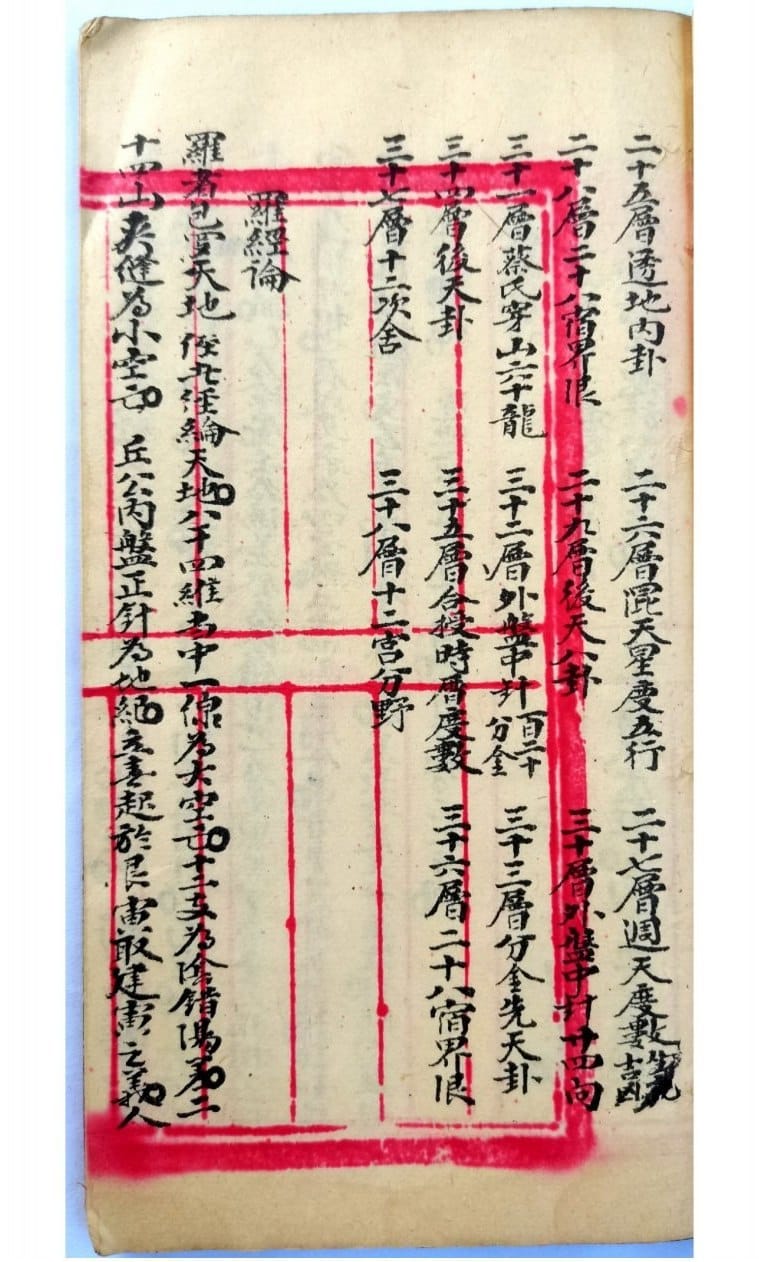 二十五層透地內卦　二十六層渾天星度五行　二十七層週天度數吉凶
二十八層二十八宿界限　二十九層後天八卦　三十層外盤中針十四向
三十一層蔡氏穿山六十龍　三十二層外盤中針百二十分金　三十三層分金先天卦
三十四層後天卦　三十五層合授時曆度數　三十六層二十八宿界限
三十七層十二次舍　三十八層十二宮分野
羅經論
羅者包罗天地　經者經綸天地　八干四維當中一線為大空亡　十二支為陰錯陽差　二
十四山夾縫為小空亡　丘公內盤正針為地紀　立春起於艮寅　取建寅之義　人